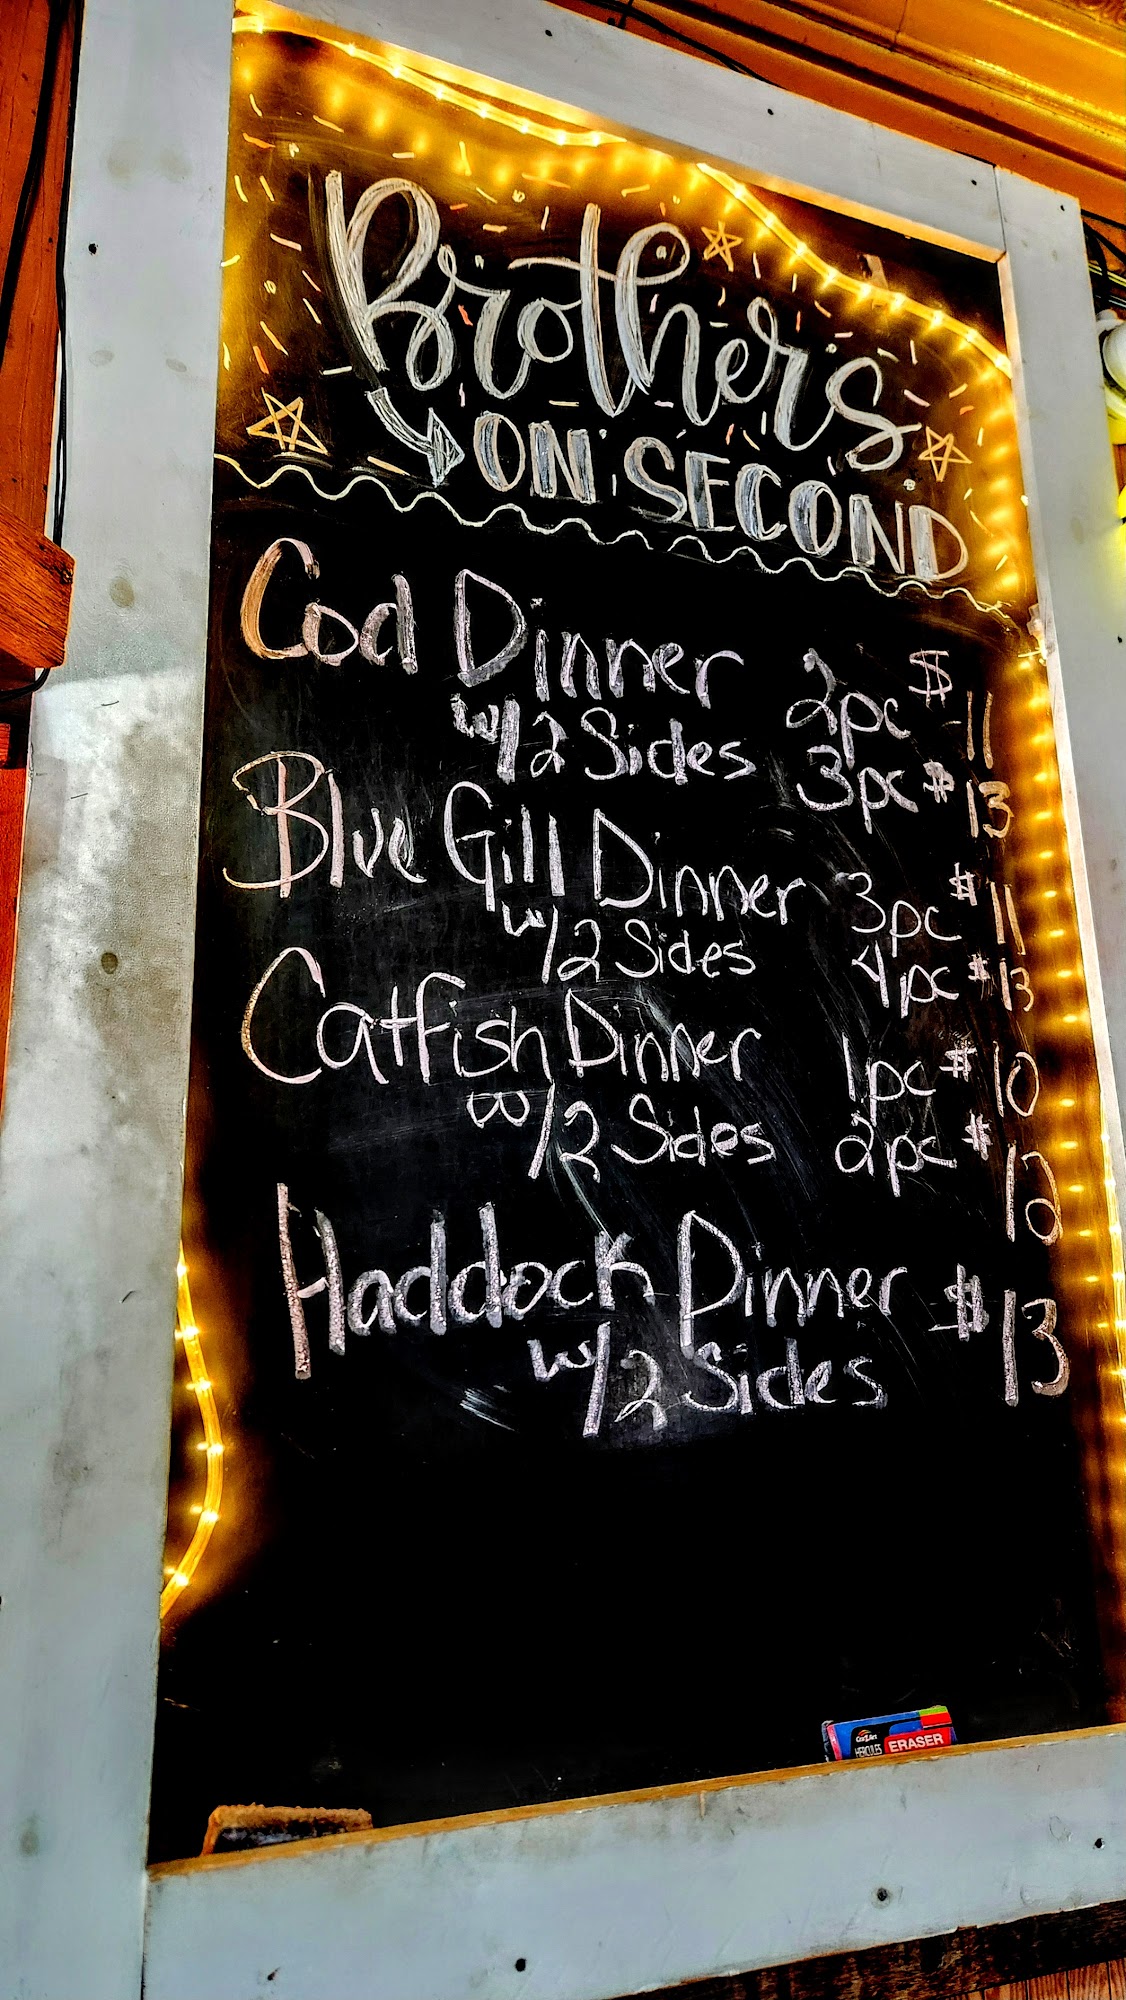 Brothers
ON SECOND
Cod Dinner 2pc $11
w/2 Sides 3pc $13
Blue Gill Dinner 3pc $11
w/2 Sides 4pc $13
Catfish Dinner 1pc $10
w/2 Sides 2pc $12
Haddock Dinner $13
w/2 Sides
HERCULES ERASER